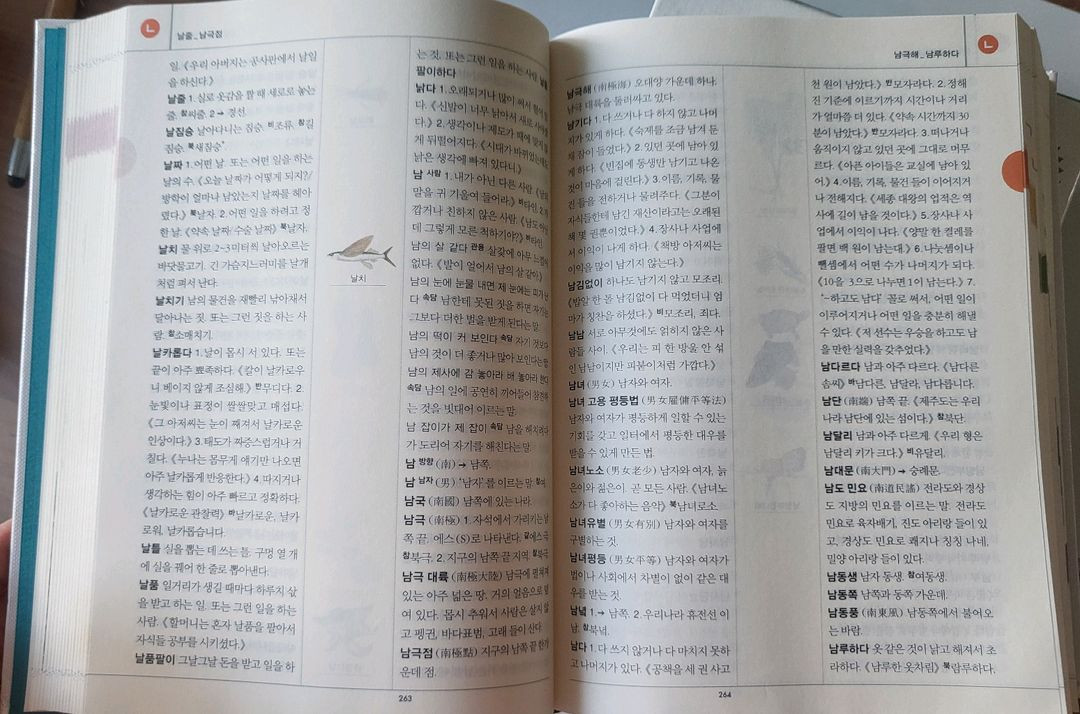 ㄴ
날줄_남극점
일. 《우리 아버지는 공사판에서 날일
을 하신다.》
날줄 1.실로 옷감을 짤 때 세로로 놓는
줄. 참씨줄. 2 → 경선.
날짐승 날아다니는 짐승. 비조류. 참길
짐승. 북새짐승*.
날짜 1.어떤 날. 또는 어떤 일을 하는
날의 수. 《오늘 날짜가 어떻게 되지?/
방학이 얼마나 남았는지 날짜를 헤아
렸다.》 북날자. 2.어떤 일을 하려고 정
한 날. 《약속 날짜/수술 날짜》 북날자.
날치 물 위로 2~3미터씩 날아오르는
바닷물고기. 긴 가슴지느러미를 날개
처럼 펴서 난다.
날치기 남의 물건을 재빨리 낚아채서
달아나는 짓. 또는 그런 짓을 하는 사
람. 참소매치기.
날카롭다 1.날이 몹시 서 있다. 또는
끝이 아주 뾰족하다. 《칼이 날카로우
니 베이지 않게 조심해.》 반무디다. 2.
눈빛이나 표정이 쌀쌀맞고 매섭다.
《그 아저씨는 눈이 째져서 날카로운
인상이다.》 3.태도가 짜증스럽거나 거
칠다. 《누나는 몸무게 얘기만 나오면
아주 날카롭게 반응한다.》 4.따지거나
생각하는 힘이 아주 빠르고 정확하다.
《날카로운 관찰력》 바날카로운, 날카
로워, 날카롭습니다.
날틀 실을 뽑는 데 쓰는 틀. 구멍 열 개
에 실을 꿰어 한 줄로 뽑아낸다.
날품 일거리가 생길 때마다 하루치 삯
을 받고 하는 일. 또는 그런 일을 하는
사람. 《할머니는 혼자 날품을 팔아서
자식들 공부를 시키셨다.》
날품팔이 그날그날 돈을 받고 일을 하
날치
는 것. 또는 그런 일을 하는 사람.
팔이하다
낡다 1.오래되거나 많이 써서
다. 《신발이 너무 낡아서 새로
다.》 2.생각이나 제도가 때에 맞지
게 뒤떨어지다. 《시대가 바뀌었는데도
낡은 생각에 빠져 있다니.》
남 사람 1.내가 아닌 다른 사람. 《남의
말을 귀 기울여 들어라.》 비타인. 2.
깝거나 친하지 않은 사람. 《남도 아닌
데 그렇게 모른 척하기야?》 비타인.
남의 살 같다 관용 살갗에 아무 느낌이
없다. 《발이 얼어서 남의 살 같아.》
남의 눈에 눈물 내면 제 눈에는 피가 난
다 속담 남한테 못된 짓을 하면 자기는
그보다 더한 벌을 받게 된다는 말.
남의 떡이 커 보인다 속담 자기 것보다
남의 것이 더 좋거나 많아 보인다는 말.
남의 제사에 감 놓아라 배 놓아라 한다
속담 남의 일에 공연히 끼어들어 참견하
는 것을 빗대어 이르는 말.
남 잡이가 제 잡이 속담 남을 해치려다
가 도리어 자기를 해친다는 말.
남 방향 (南) → 남쪽.
남 남자 (男) '남자'를 이르는 말. 참여.
남국 (南國) 남쪽에 있는 나라.
남극 (南極) 1.자석에서 가리키는 남
쪽 끝. 에스(S)로 나타낸다. 같에스극.
참북극. 2.지구의 남쪽 끝 지역. 참북극.
남극 대륙 (南極大陸) 남극에 펼쳐져
있는 아주 넓은 땅. 거의 얼음으로 덮
여 있다. 몹시 추워서 사람은 살지 않
고 펭귄, 바다표범, 고래 들이 산다.
남극점 (南極點) 지구의 남쪽 끝 한가
운데 점.
263
남극해_남루하다
ㄴ
남극해 (南極海) 오대양 가운데 하나.
남극 대륙을 둘러싸고 있다.
남기다 1.다 쓰거나 다 하지 않고 나머
지가 있게 하다. 《숙제를 조금 남겨 둔
채 잠이 들었다.》 2.있던 곳에 남아 있
게 하다. 《빈집에 동생만 남기고 나온
것이 마음에 걸린다.》 3.이름, 기록, 물
건 들을 전하거나 물려주다. 《그분이
자식들한테 남긴 재산이라고는 오래된
책 몇 권뿐이었다.》 4.장사나 사업에
서 이익이 나게 하다. 《책방 아저씨는
이익을 많이 남기지 않는다.》
남김없이 하나도 남기지 않고 모조리.
《밥알 한 톨 남김없이 다 먹었더니 엄
마가 칭찬을 하셨다.》 비모조리, 죄다.
남남 서로 아무것에도 얽히지 않은 사
람들 사이. 《우리는 피 한 방울 안 섞
인 남남이지만 피붙이처럼 가깝다.》
남녀 (男女) 남자와 여자.
남녀 고용 평등법 (男女雇傭平等法)
남자와 여자가 평등하게 일할 수 있는
기회를 갖고 일터에서 평등한 대우를
받을 수 있게 만든 법.
남녀노소 (男女老少) 남자와 여자, 늙
은이와 젊은이. 곧 모든 사람. 《남녀노
소가 다 좋아하는 음악》 북남녀로소.
남녀유별 (男女有別) 남자와 여자를
구별하는 것.
남녀평등 (男女平等) 남자와 여자가
법이나 사회에서 차별이 없이 같은 대
우를 받는 것.
남녘 1.→ 남쪽. 2.우리나라 휴전선 이
남. 참북녘.
남다 1.다 쓰지 않거나 다 마치지 못하
고 나머지가 있다. 《공책을 세 권 사고
천 원이 남았다.》 반모자라다. 2.정해
진 기준에 이르기까지 시간이나 거리
가 얼마쯤 더 있다. 《약속 시간까지 30
분이 남았다.》 반모자라다. 3.떠나거나
움직이지 않고 있던 곳에 그대로 머무
르다. 《아픈 아이들은 교실에 남아 있
어.》 4.이름, 기록, 물건 들이 이어지거
나 전해지다. 《세종 대왕의 업적은 역
사에 길이 남을 것이다.》 5.장사나 사
업에서 이익이 나다. 《양말 한 켤레를
팔면 백 원이 남는대.》 6.나눗셈이나
뺄셈에서 어떤 수가 나머지가 되다.
《10을 3으로 나누면 1이 남는다.》 7.
'-하고도 남다' 꼴로 써서, 어떤 일이
이루어지거나 어떤 일을 충분히 해낼
수 있다. 《저 선수는 우승을 하고도 남
을 만한 실력을 갖추었다.》
남다르다 남과 아주 다르다. 《남다른
솜씨》 바남다른, 남달라, 남다릅니다.
남단 (南端) 남쪽 끝. 《제주도는 우리
나라 남단에 있는 섬이다.》 참북단.
남달리 남과 아주 다르게. 《우리 형은
남달리 키가 크다.》 비유달리.
남대문 (南大門) → 숭례문.
남도 민요 (南道民謠) 전라도와 경상
도 지방의 민요를 이르는 말. 전라도
민요로 육자배기, 진도 아리랑 들이 있
고, 경상도 민요로 쾌지나 칭칭 나네,
밀양 아리랑 들이 있다.
남동생 남자 동생. 참여동생.
남동쪽 남쪽과 동쪽 가운데.
남동풍 (南東風) 남동쪽에서 불어오
는 바람.
남루하다 옷 같은 것이 낡고 해져서 초
라하다. 《남루한 옷차림》 북람루하다.
264